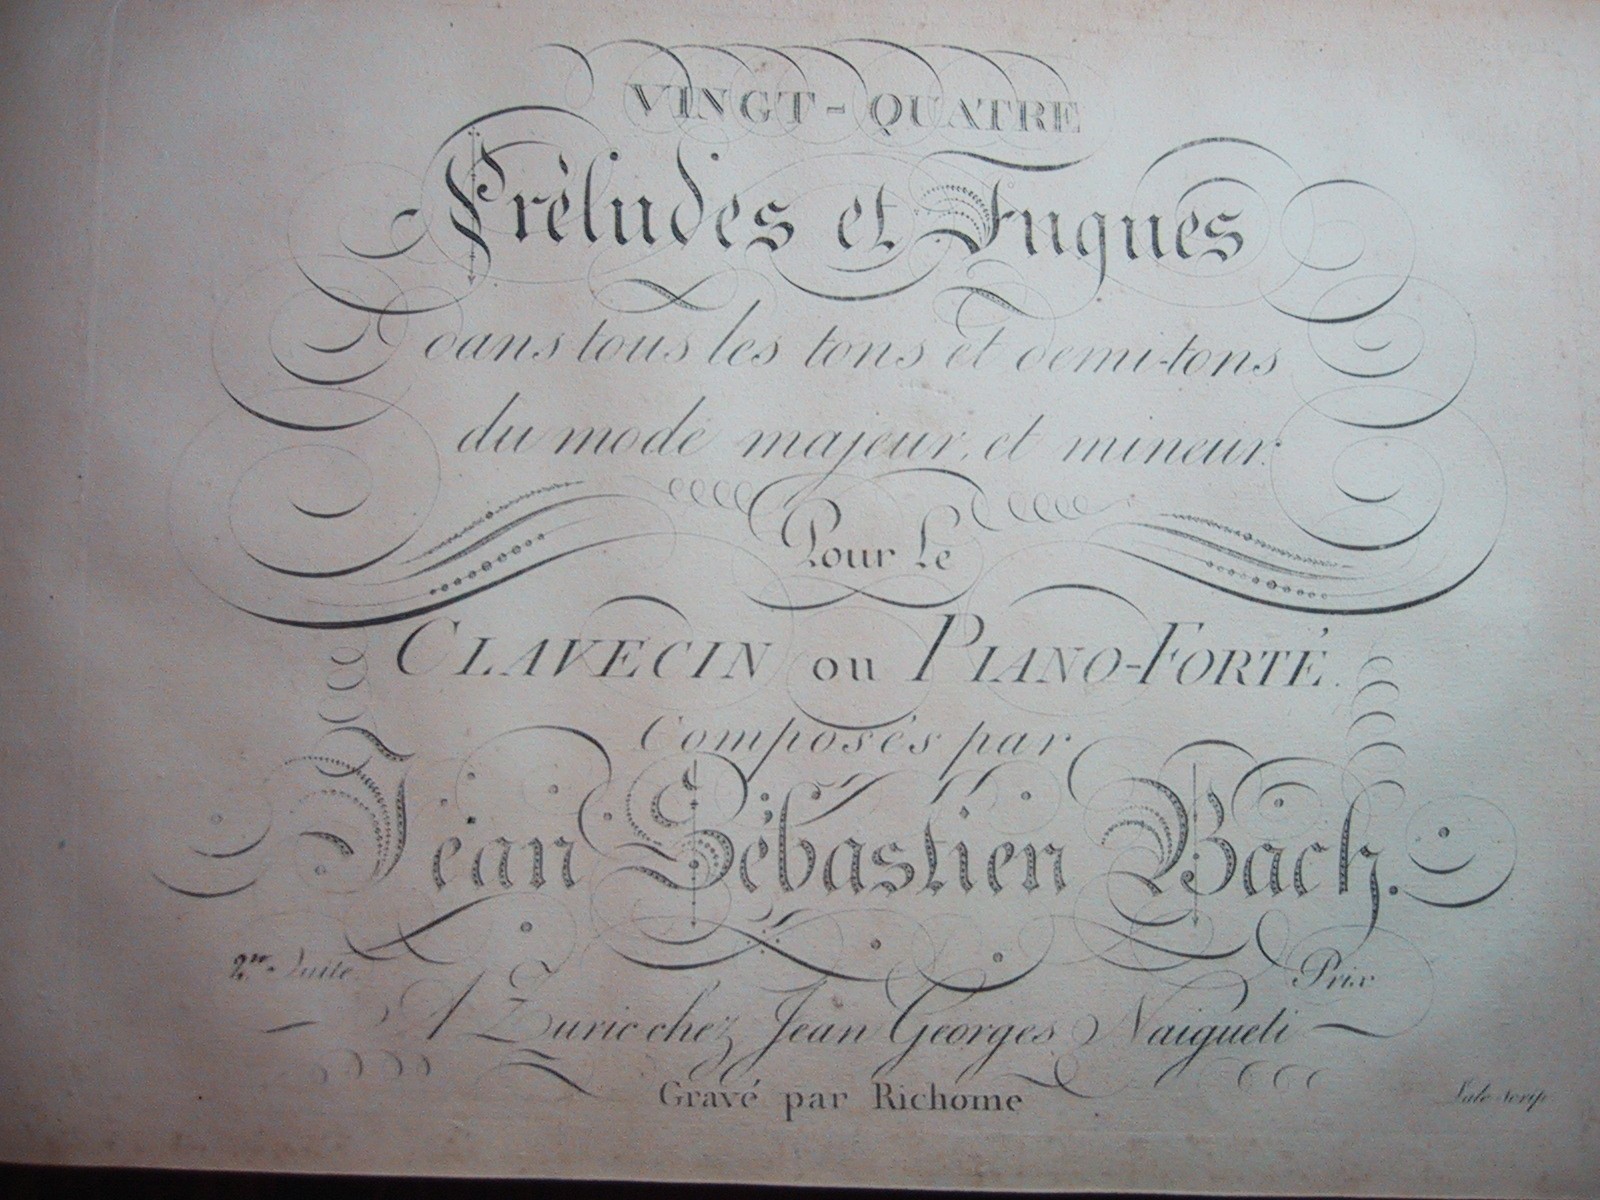 VINGT-QUATRE
Préludes et Fugues
dans tous les tons et demi-tons
du mode majeur, et mineur.
Pour le
CLAVECIN ou PIANO-FORTÉ.
Composés par
Jean Sébastien Bach.
2.me Suite.
Prix
A Zuric chez Jean Georges Naigueli
Gravé par Richome
scrip